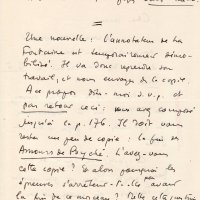 Une nouvelle : l'annotateur de La
Fontaine est temporairement immo-
bilisé. Il va donc reprendre son
travail, et nous envoyer de la copie
A ce propos dis-moi s.v.p. et
par retour ceci : nous avons composé
jusqu'à la p. 176. Il doit vous
rester un peu de copie : la fin de
Amours de Psyché. L'avez-vous
cette copie ? Et alors pourquoi les
épreuves s'arrêtent-elles avant
la fin de ce morceau ?